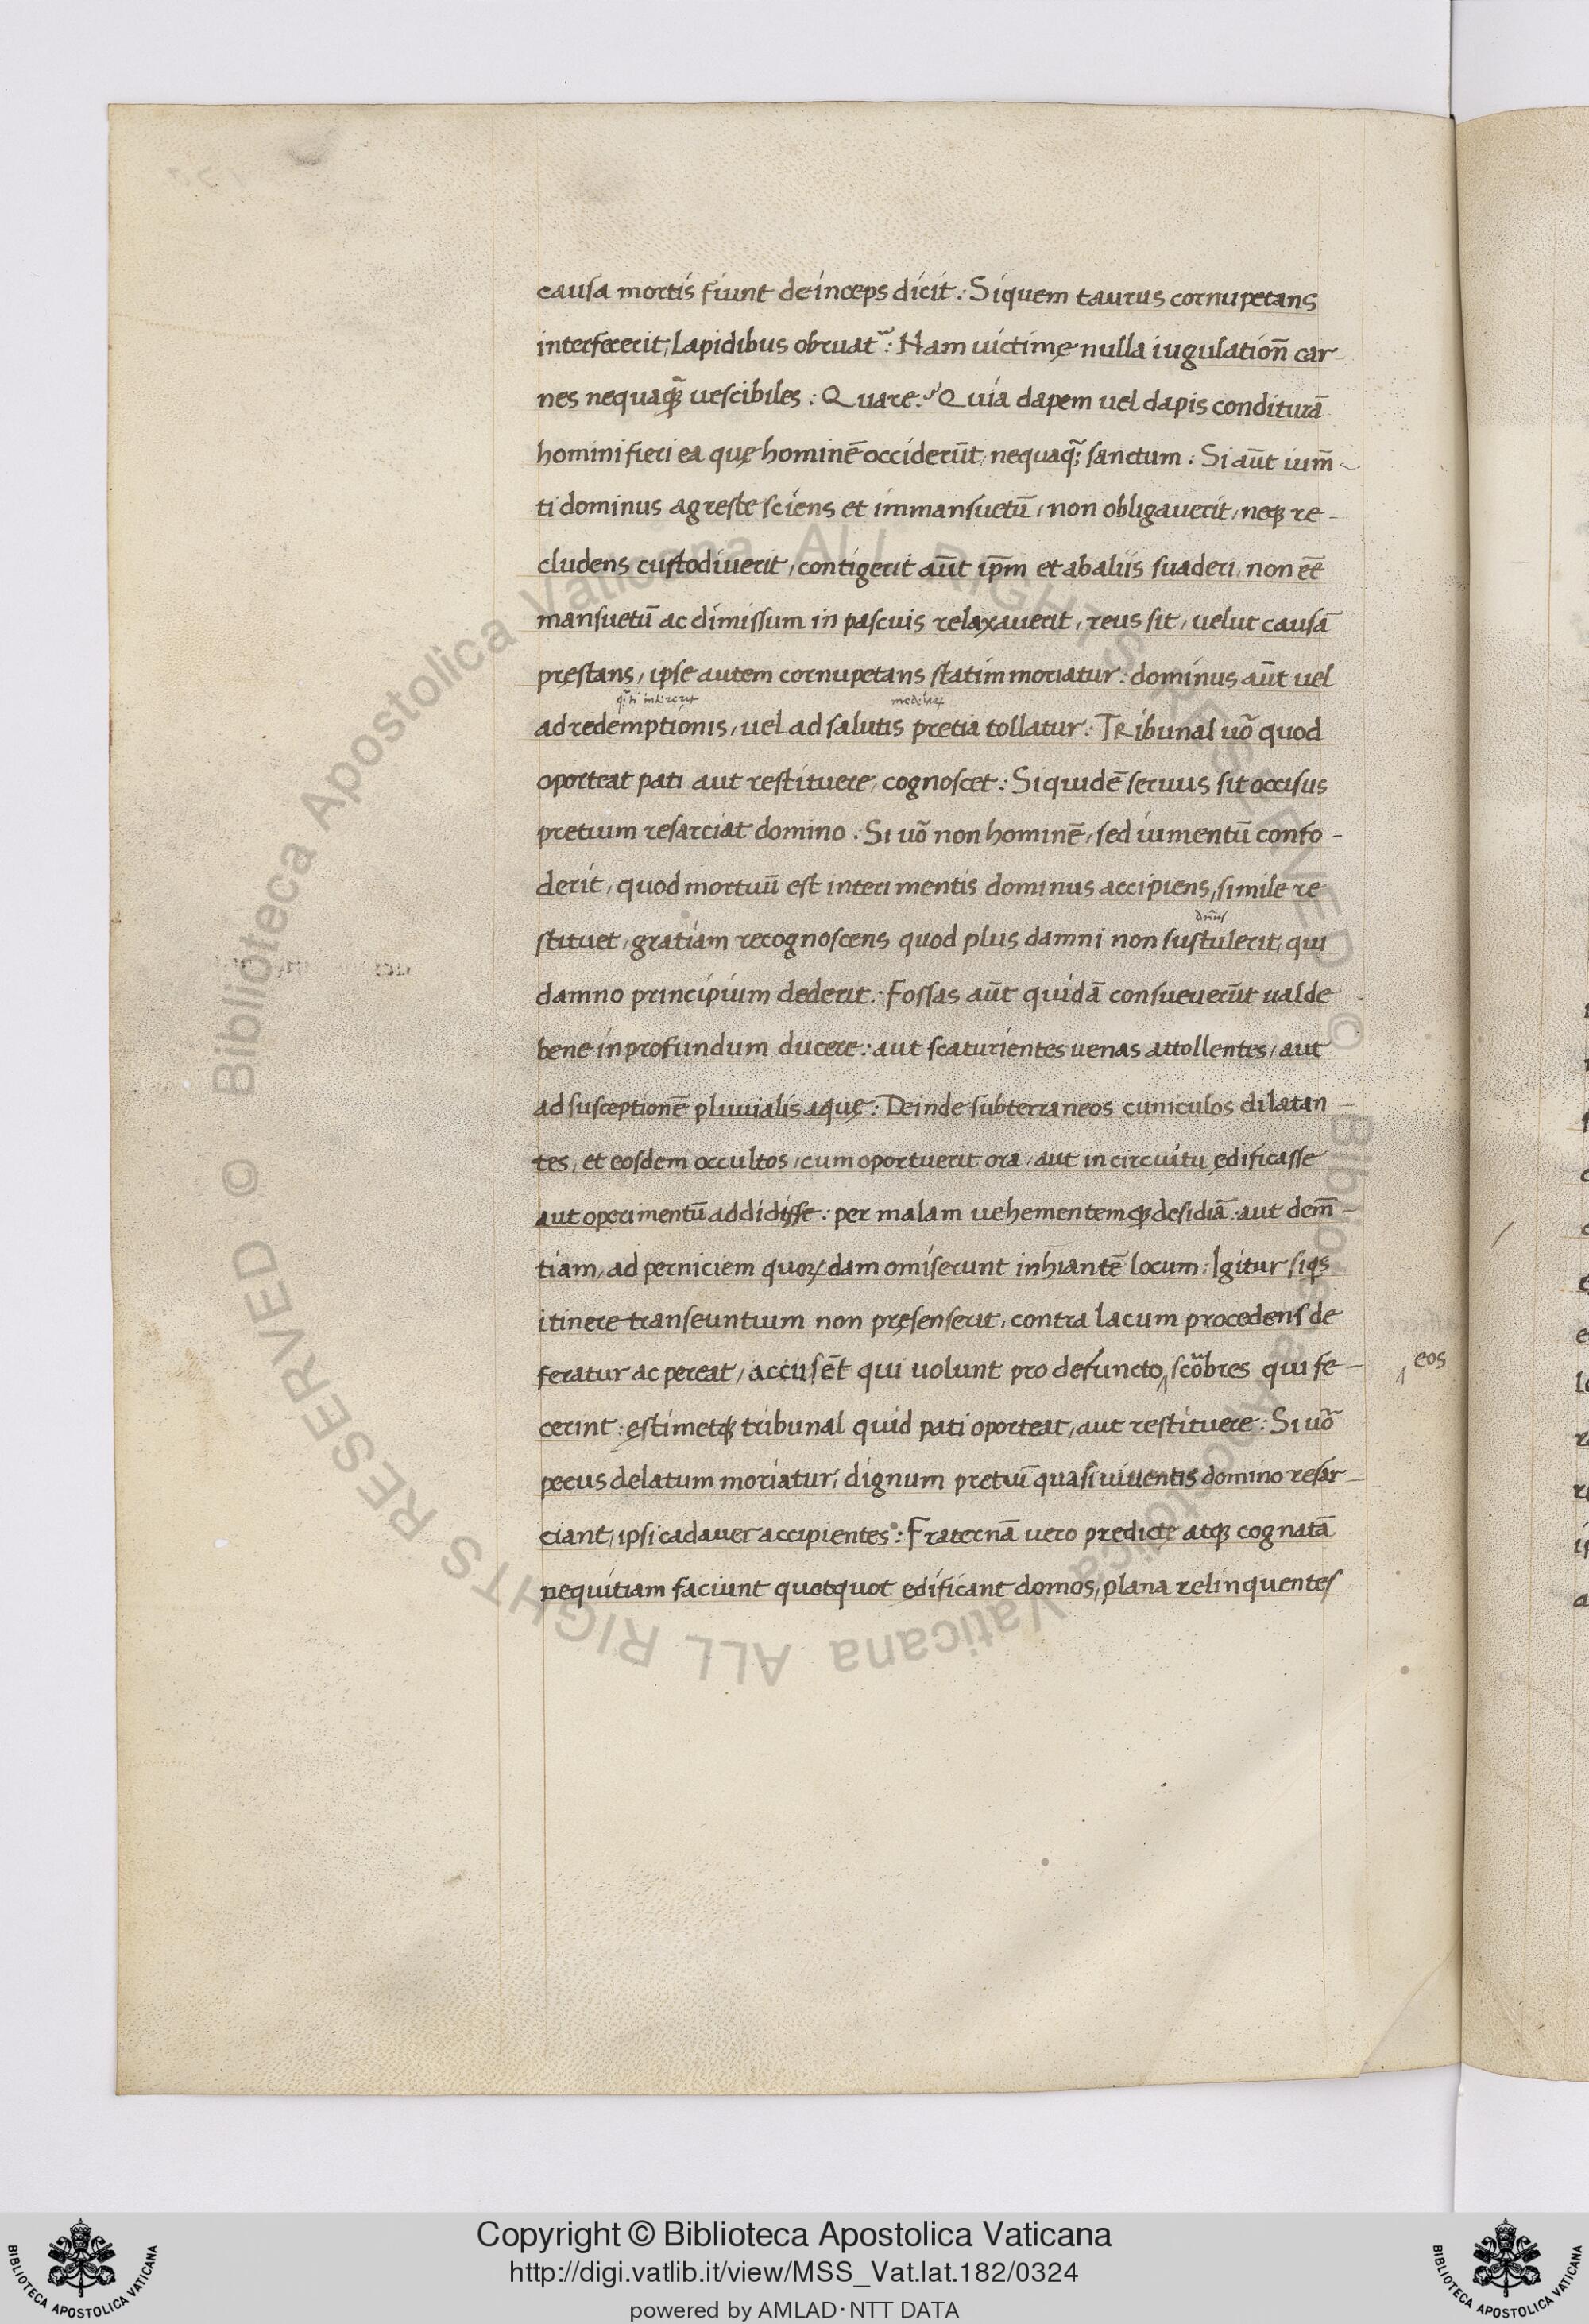 causa mortis fiunt deinceps dicit: Siquem taurus cornupetans
interfecerit, Lapidibus obruat᷑: Nam uictimę nulla iugulation̄ car-
nes nequaq̃ȝ uescibiles: Quare? Quia dapem uel dapis conditurā
homini fieri ea quę hominē occiderūt, nequaq̃ȝ sanctum: Si aūt ium̄-
ti dominus agreste sciens et immansuetū, non obligauerit, neqȝ re-
cludens custodiuerit, contigerit aūt ip̄m et ab aliis suaderi, non eē
mansuetū ac dimissum in pascuis relaxauerit, reus sit, uelut causā
pręstans, ipse autem cornupetans statim moriatur: dominus aūt uel
ad redemptionis, uel ad salutis pretia tollatur: Tribunal uō quod
oporteat pati aut restituere, cognoscet: Siquidē seruus sit occisus
pretium resarciat domino. Si uō non hominē, sed iumentū confo-
derit, quod mortuū est interimentis dominus accipiens, simile re
dn̄us
stituet, gratiam recognoscens quod plus damni non sustulerit, qui
damno principium dederit: Fossas aūt quidā consueuerūt ualde
bene in profundum ducere: aut scaturientes uenas attollentes, aut
ad susceptionē pluuialis aquę: Deinde subterraneos cuniculos dilatan-
tes, et eosdem occultos, cum oportuerit ora, aut in circuitu ędificasse
aut operimentū addidisse: per malam uehementemqȝ desidiā: aut dem̄-
tiam, ad perniciem quorꝝdam omiserunt inhiantē locum: Igitur siqs
itinere transeuntium non pręsenserit, contra lacum procedens de
feratur ac pereat, accusēt qui uolunt pro defuncto, scōbres qui fe-
eos
cerint: ęstimetqȝ tribunal quid pati oporteat, aut restituere: Si uō
pecus delatum moriatur, dignum pretiū quasi uiuentis domino resar-
ciant, ipsi cadauer accipientes: Fraternā uero predictę atqȝ cognatā
nequitiam faciunt quotquot ędificant domos, plana relinquentes
Copyright © Biblioteca Apostolica Vaticana
http://digi.vatlib.it/view/MSS_Vat.lat.182/0324
powered by AMLAD·NTT DATA
BIBLIOTECA APOSTOLICA VATICANA
BIBLIOTECA APOSTOLICA VATICANA
© Biblioteca Apostolica Vaticana ALL RIGHTS RESERVED
© Biblioteca Apostolica Vaticana ALL RIGHTS RESERVED